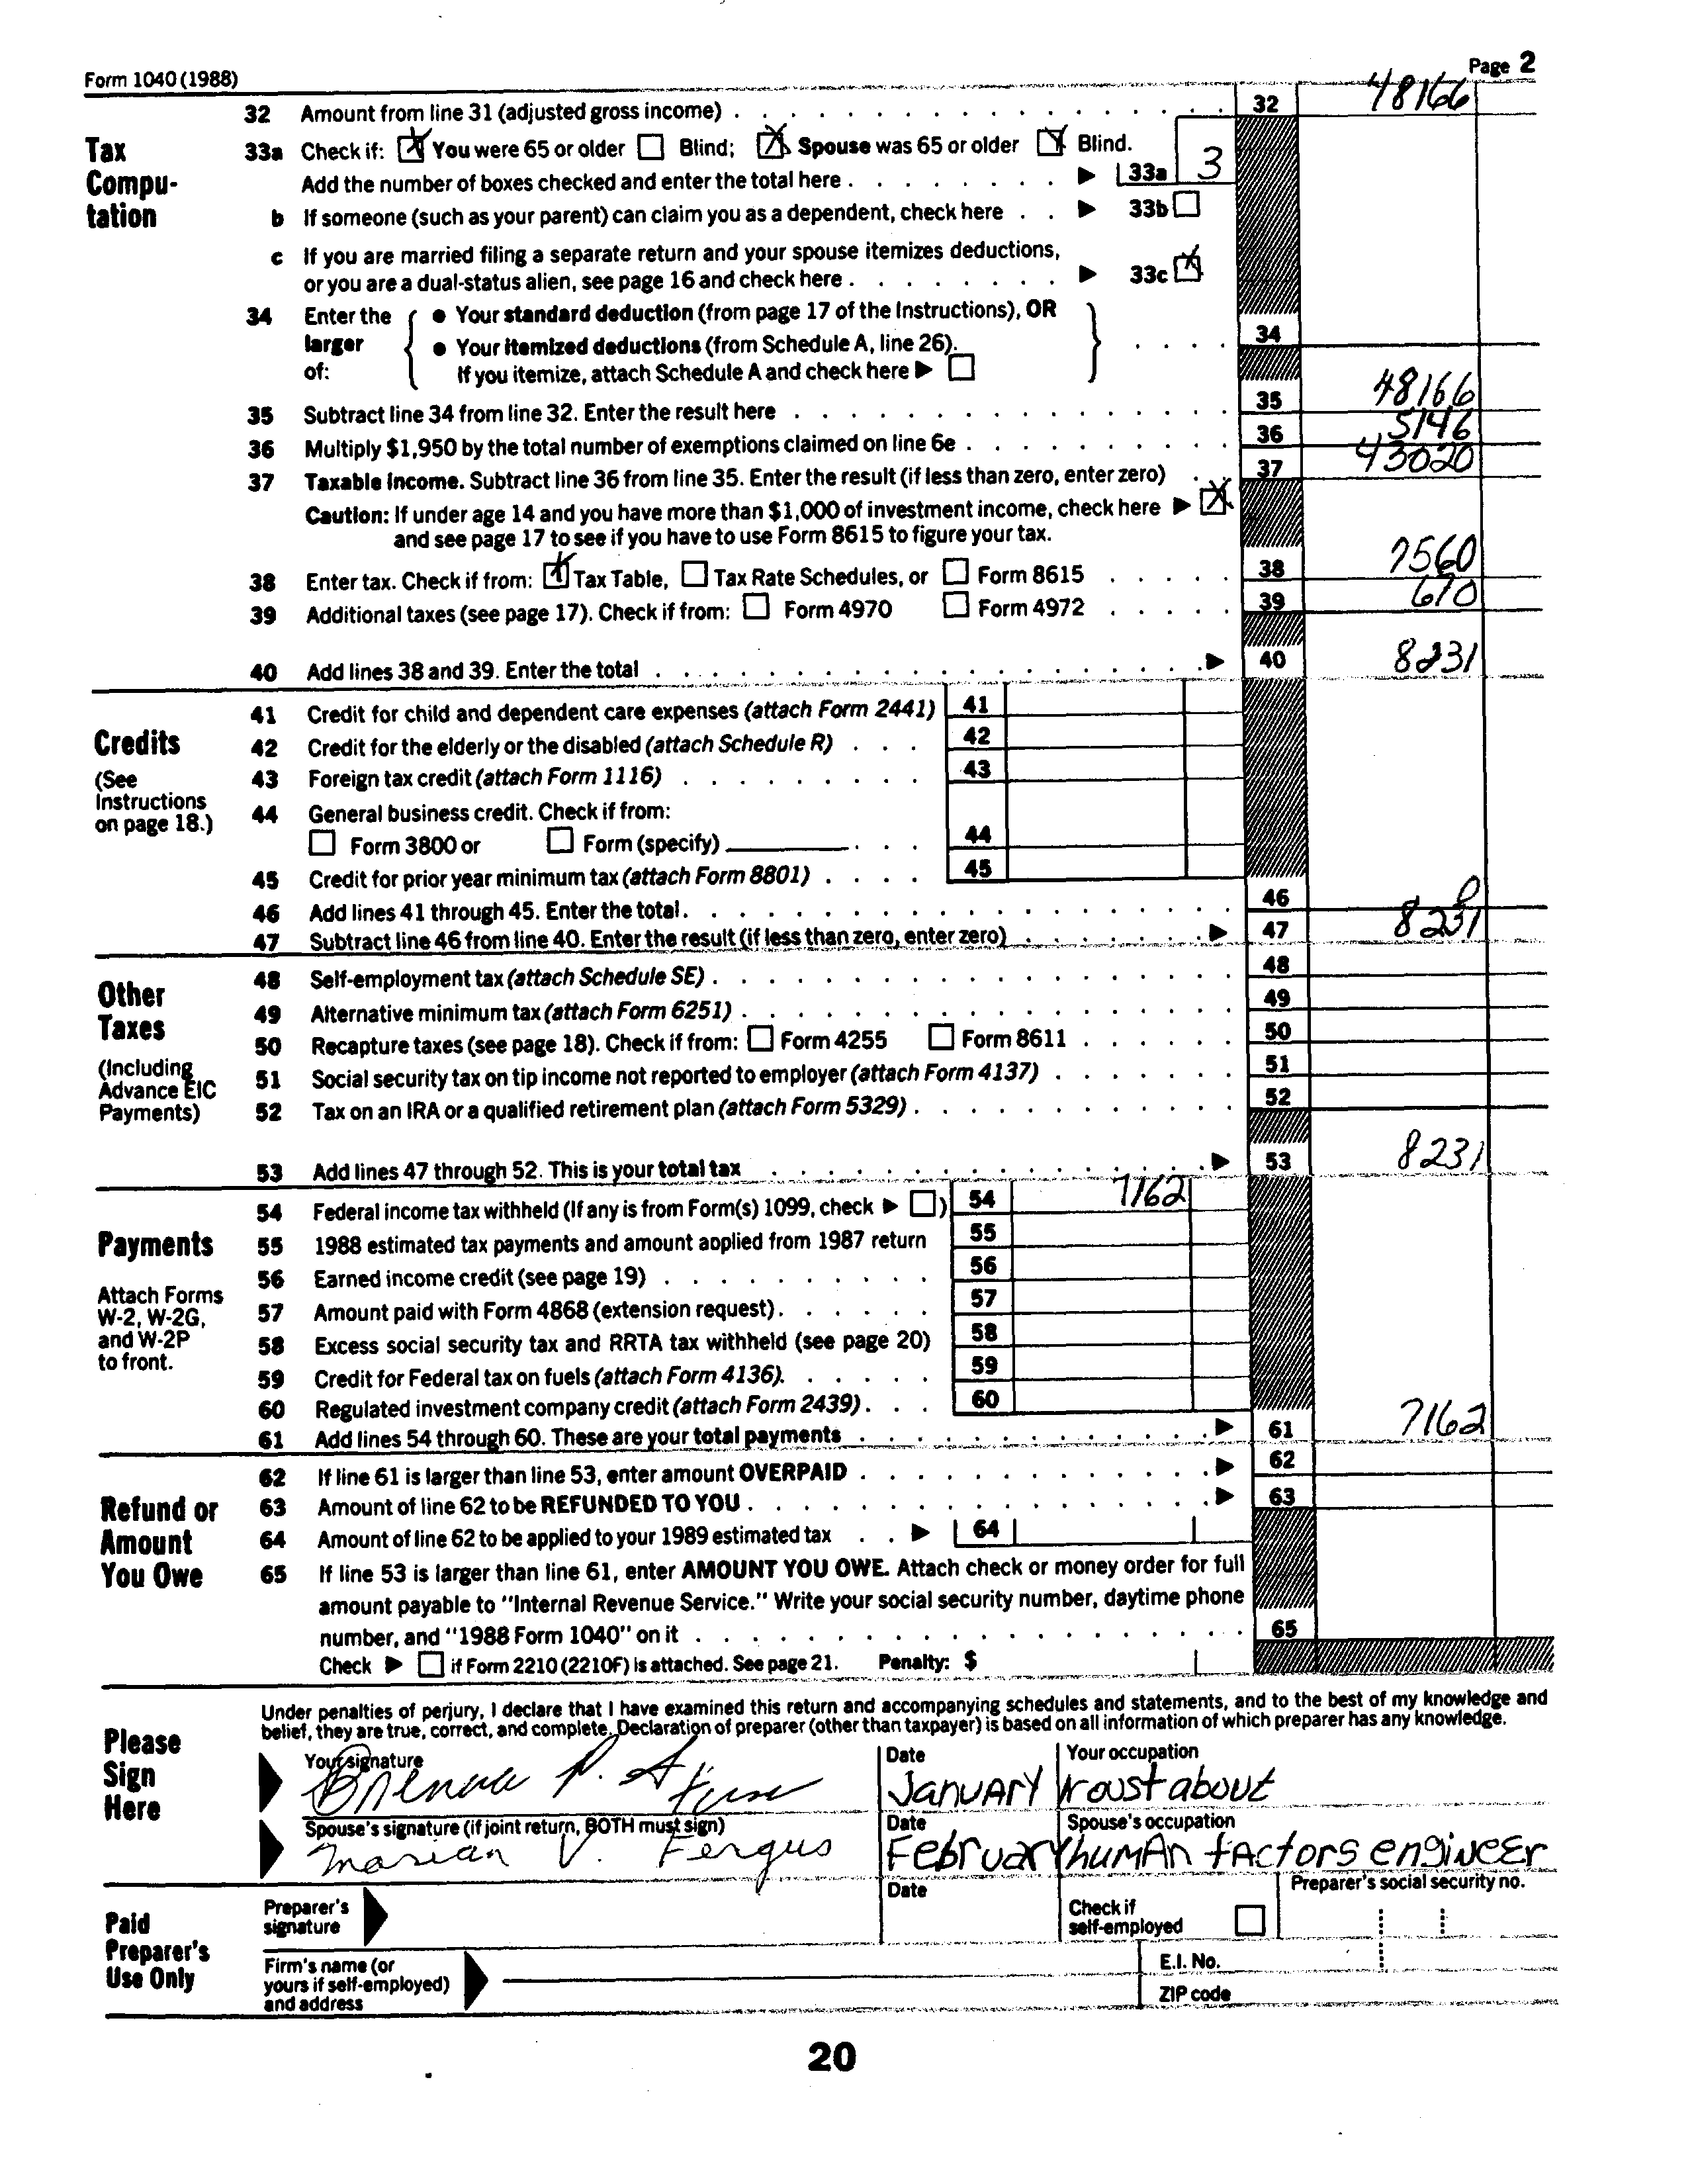 Form 1040 (1988) Page 2
32 Amount from line 31 (adjusted gross income) 32 48166
Tax Compu-tation
33a Check if: You were 65 or older Blind; Spouse was 65 or older Blind.
Add the number of boxes checked and enter the total here 33a 3
b If someone (such as your parent) can claim you as a dependent, check here 33b
c If you are married filing a separate return and your spouse itemizes deductions,
or you are a dual-status alien, see page 16 and check here 33c
34 Enter the larger of:
• Your standard deduction (from page 17 of the Instructions), OR
• Your itemized deductions (from Schedule A, line 26). 34
If you itemize, attach Schedule A and check here
35 Subtract line 34 from line 32. Enter the result here 35 48166
36 Multiply $1,950 by the total number of exemptions claimed on line 6e 36 5146
37 Taxable income. Subtract line 36 from line 35. Enter the result (if less than zero, enter zero) 37 43020
Caution: If under age 14 and you have more than $1,000 of investment income, check here
and see page 17 to see if you have to use Form 8615 to figure your tax.
38 Enter tax. Check if from: Tax Table, Tax Rate Schedules, or Form 8615 38 7560
39 Additional taxes (see page 17). Check if from: Form 4970 Form 4972 39 670
40 Add lines 38 and 39. Enter the total 40 8231
Credits
(See Instructions on page 18.)
41 Credit for child and dependent care expenses (attach Form 2441) 41
42 Credit for the elderly or the disabled (attach Schedule R) 42
43 Foreign tax credit (attach Form 1116) 43
44 General business credit. Check if from:
Form 3800 or Form (specify) 44
45 Credit for prior year minimum tax (attach Form 8801) 45
46 Add lines 41 through 45. Enter the total. 46 0
47 Subtract line 46 from line 40. Enter the result (if less than zero, enter zero) 47 8231
Other Taxes
(Including Advance EIC Payments)
48 Self-employment tax (attach Schedule SE) 48
49 Alternative minimum tax (attach Form 6251) 49
50 Recapture taxes (see page 18). Check if from: Form 4255 Form 8611 50
51 Social security tax on tip income not reported to employer (attach Form 4137) 51
52 Tax on an IRA or a qualified retirement plan (attach Form 5329) 52
53 Add lines 47 through 52. This is your total tax 53 8231
Payments
Attach Forms W-2, W-2G, and W-2P to front.
54 Federal income tax withheld (If any is from Form(s) 1099, check ) 54 7162
55 1988 estimated tax payments and amount applied from 1987 return 55
56 Earned income credit (see page 19) 56
57 Amount paid with Form 4868 (extension request) 57
58 Excess social security tax and RRTA tax withheld (see page 20) 58
59 Credit for Federal tax on fuels (attach Form 4136). 59
60 Regulated investment company credit (attach Form 2439) 60
61 Add lines 54 through 60. These are your total payments 61 7162
Refund or Amount You Owe
62 If line 61 is larger than line 53, enter amount OVERPAID 62
63 Amount of line 62 to be REFUNDED TO YOU 63
64 Amount of line 62 to be applied to your 1989 estimated tax 64
65 If line 53 is larger than line 61, enter AMOUNT YOU OWE. Attach check or money order for full
amount payable to "Internal Revenue Service." Write your social security number, daytime phone
number, and "1988 Form 1040" on it 65
Check if Form 2210 (2210F) is attached. See page 21. Penalty: $
Please Sign Here
Under penalties of perjury, I declare that I have examined this return and accompanying schedules and statements, and to the best of my knowledge and
belief, they are true, correct, and complete. Declaration of preparer (other than taxpayer) is based on all information of which preparer has any knowledge.
Your signature Date Your occupation
P. January roustabout
Spouse's signature (if joint return, BOTH must sign) Date Spouse's occupation
Marian V. Fergus February human factors engineer
Paid Preparer's Use Only
Preparer's signature Date Check if self-employed Preparer's social security no.
Firm's name (or yours if self-employed) and address
E.I. No.
ZIP code
20